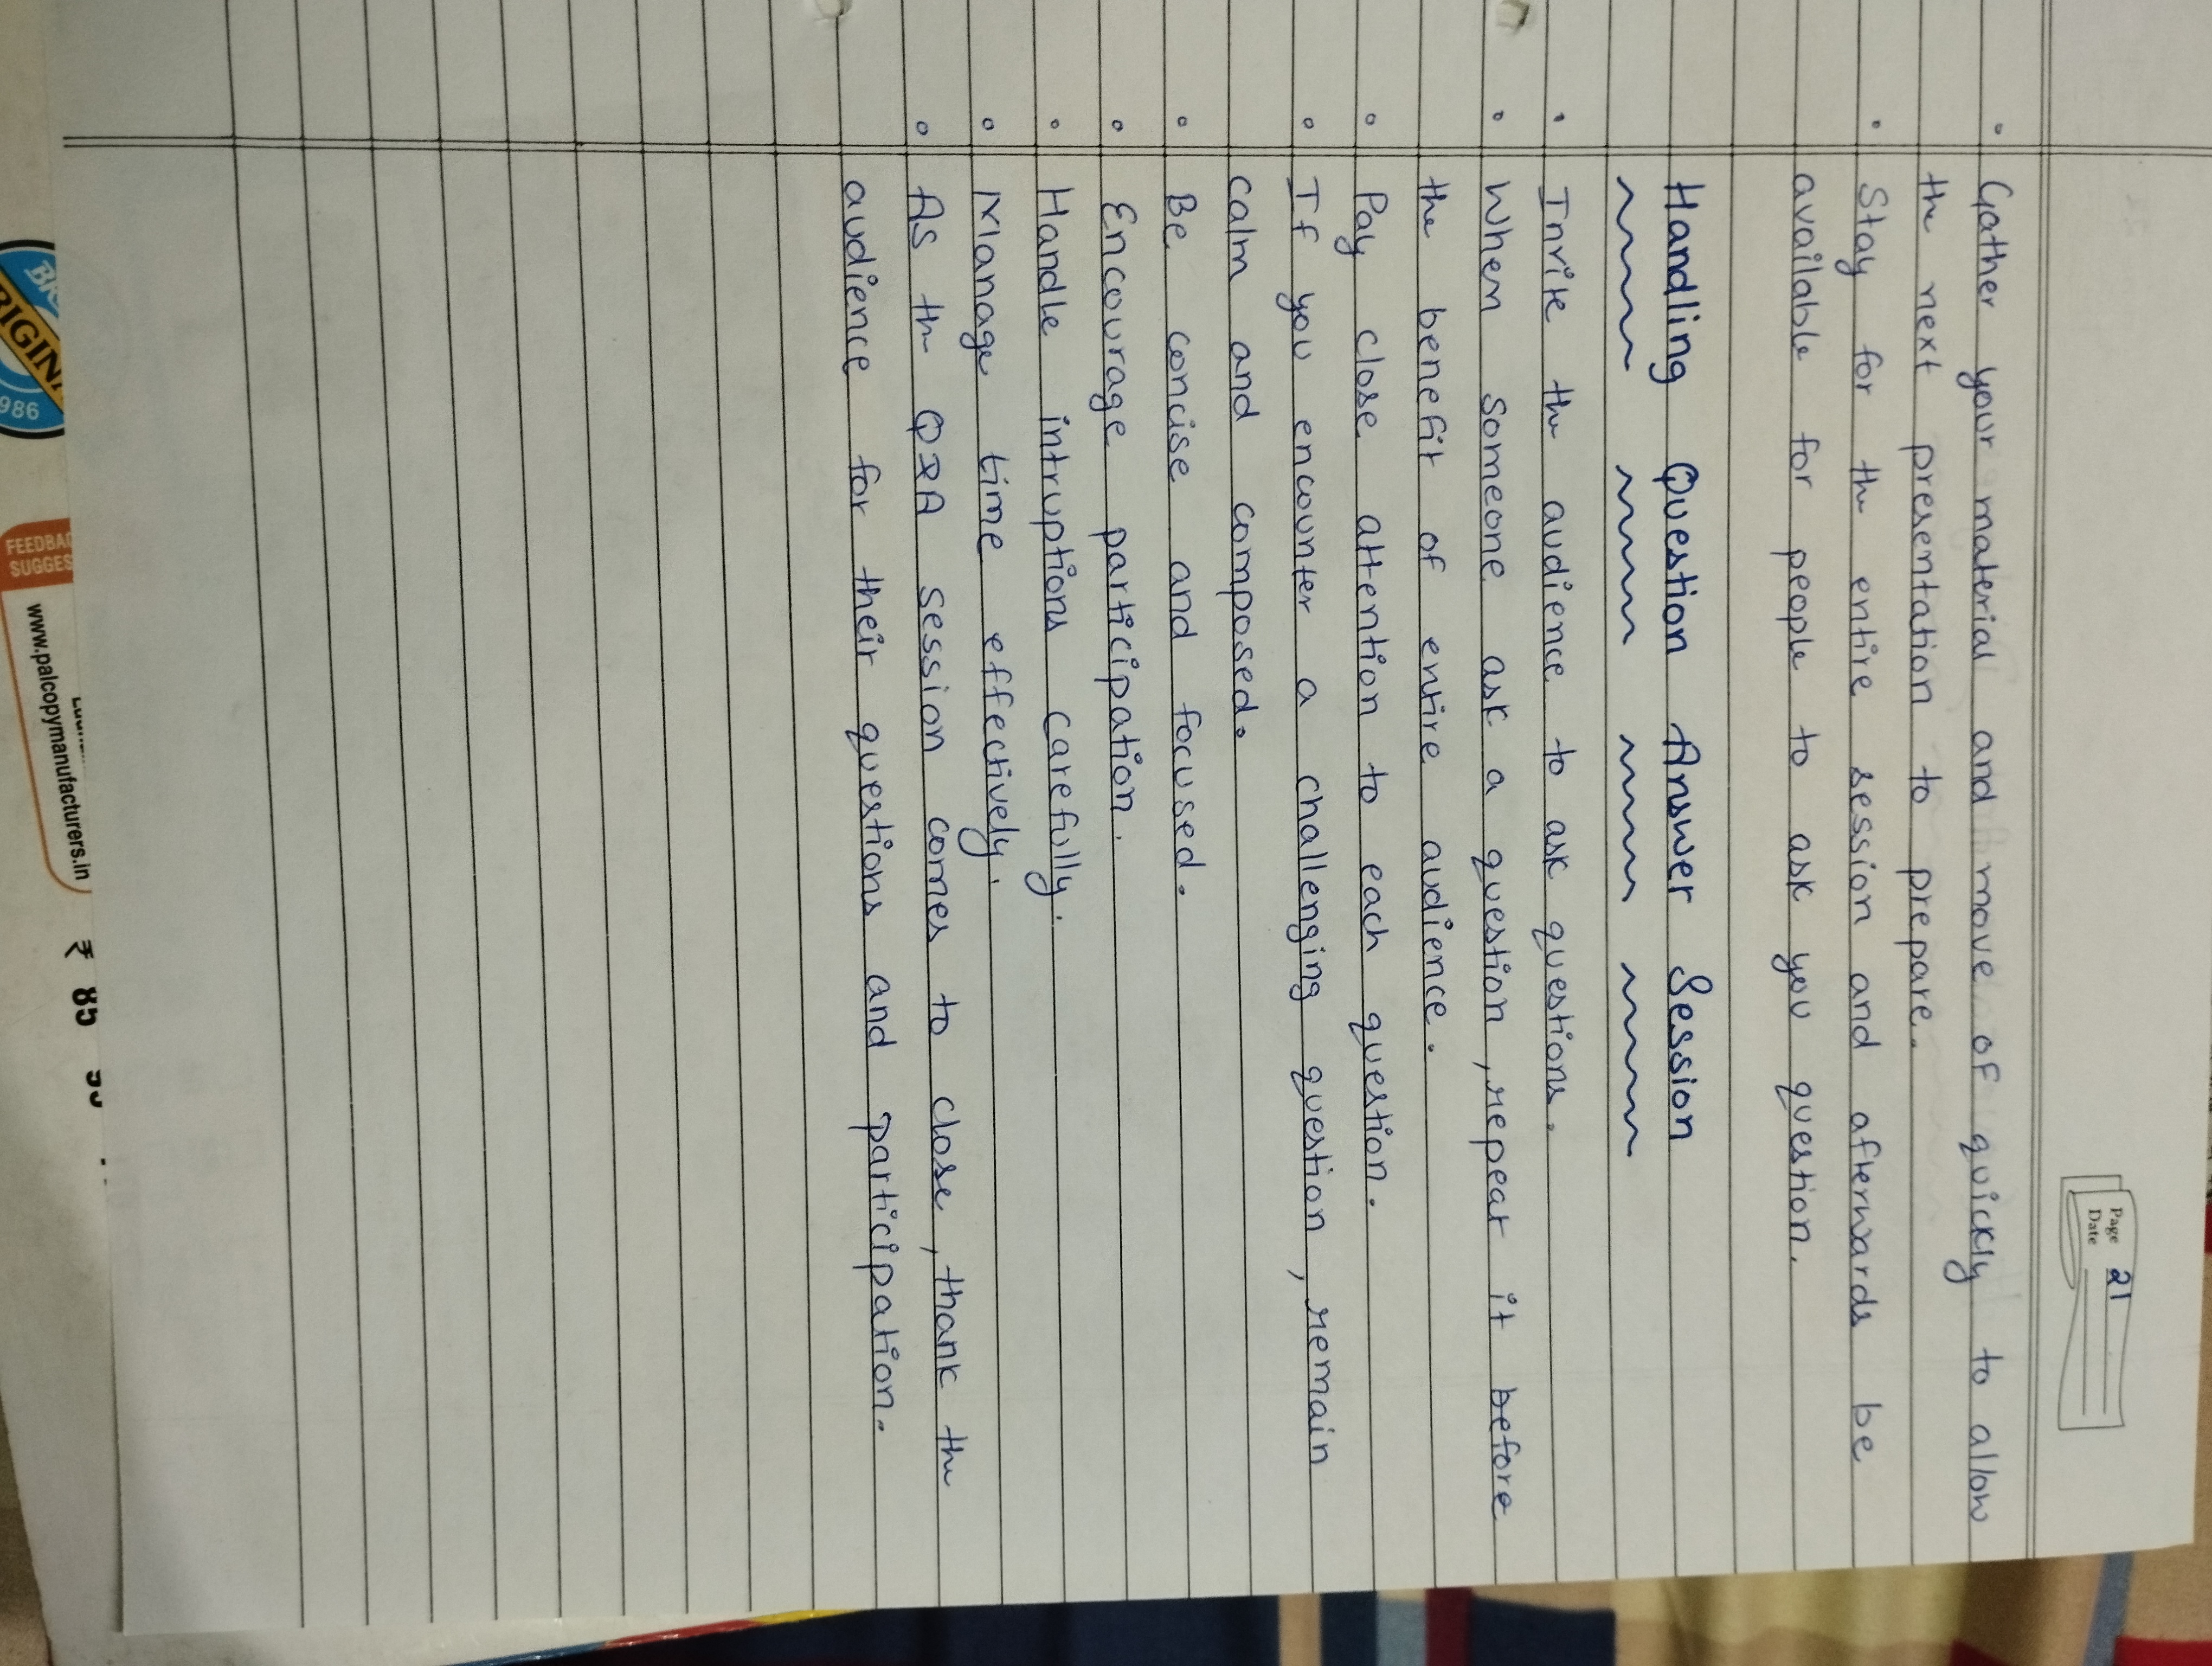 Page 21
Date
• Gather your material and move of quickly to allow
the next presentation to prepare.
• Stay for the entire session and afterwards be
available for people to ask you question.
Handling Question Answer Session
• Invite the audience to ask questions.
• When someone ask a question, repeat it before
the benefit of entire audience.
• Pay close attention to each question.
• If you encounter a challenging question, remain
calm and composed.
• Be concise and focused.
• Encourage participation.
• Handle intruptions carefully.
• Manage time effectively.
• As the Q&A session comes to close, thank the
audience for their questions and participation.
986
www.palcopymanufacturers.in
₹ 85